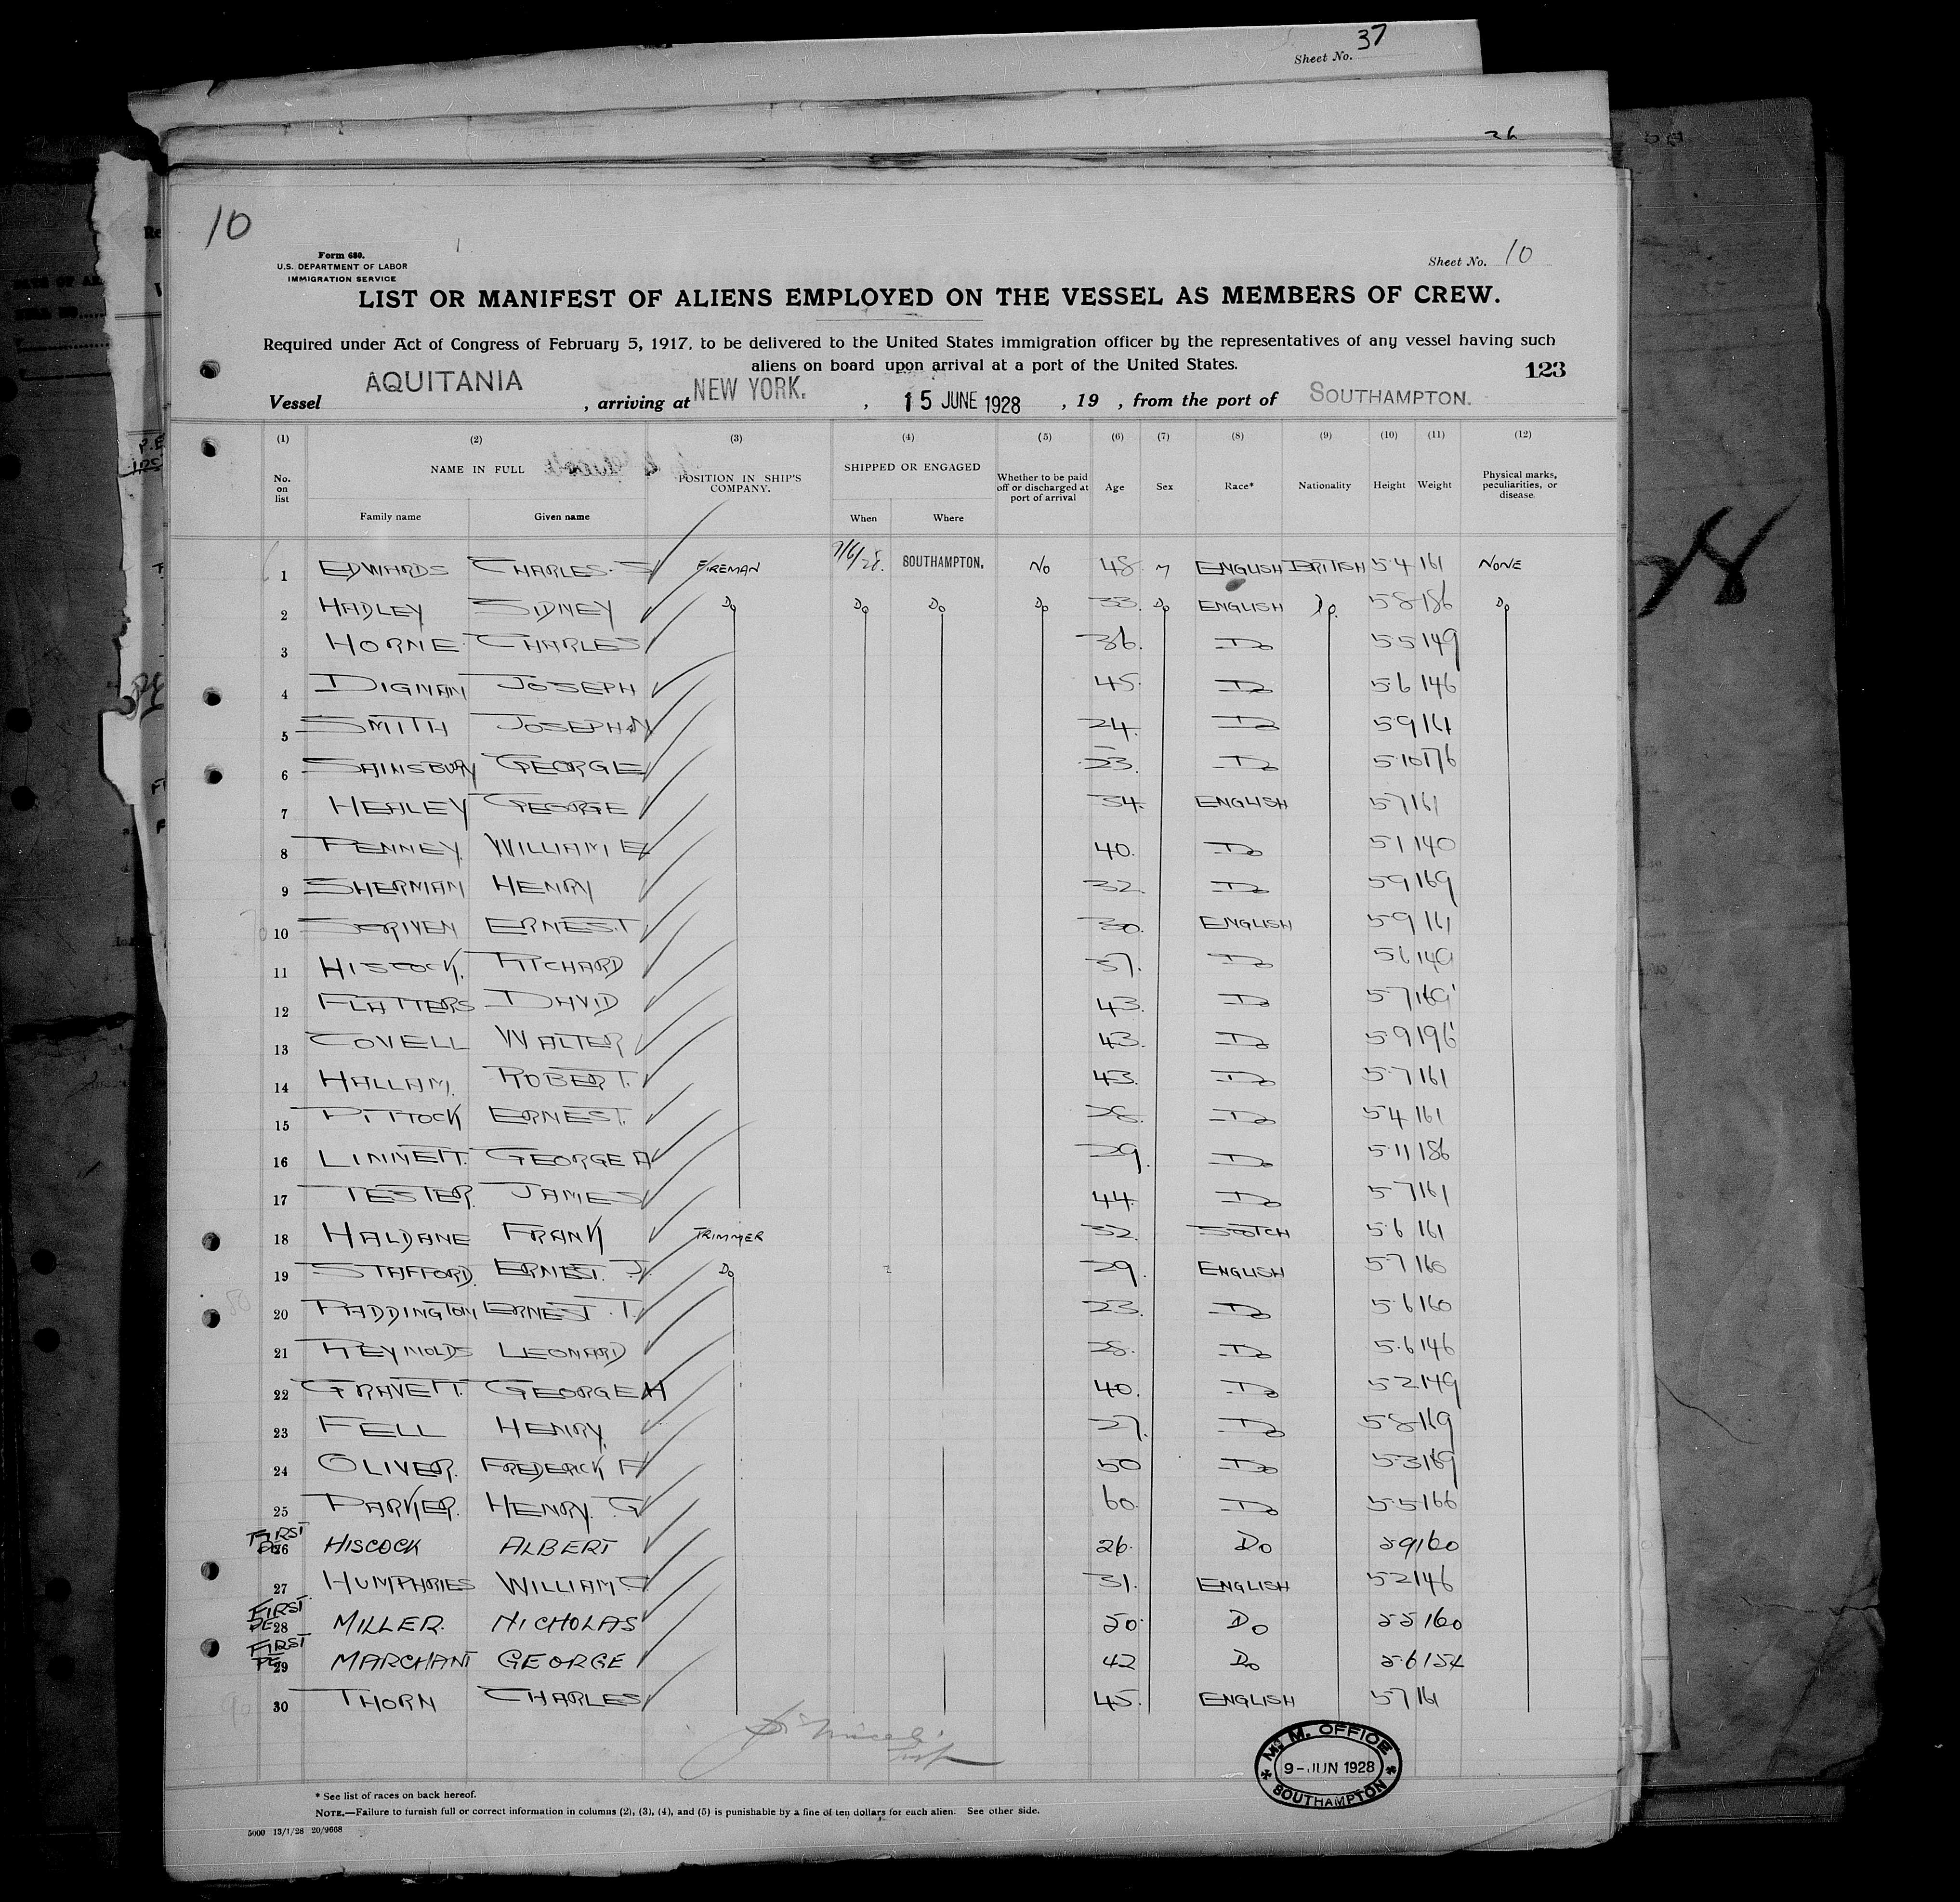 Sheet No. 37
26
10
Form 680.
U.S. DEPARTMENT OF LABOR
IMMIGRATION SERVICE
Sheet No. 10
LIST OR MANIFEST OF ALIENS EMPLOYED ON THE VESSEL AS MEMBERS OF CREW.
Required under Act of Congress of February 5, 1917, to be delivered to the United States immigration officer by the representatives of any vessel having such
aliens on board upon arrival at a port of the United States.
123
Vessel AQUITANIA , arriving at NEW YORK. , 15 JUNE 1928 , 19 , from the port of SOUTHAMPTON.
(1) (2) (3) (4) (5) (6) (7) (8) (9) (10) (11) (12)
No. on list NAME IN FULL POSITION IN SHIP'S COMPANY. SHIPPED OR ENGAGED Whether to be paid off or discharged at port of arrival Age Sex Race* Nationality Height Weight Physical marks, peculiarities, or disease.
Family name Given name When Where
1 EDWARDS CHARLES. S FIREMAN 9/6/28. SOUTHAMPTON. NO 48 M ENGLISH BRITISH 5.4 161 NONE
2 HADLEY SIDNEY Do Do Do Do 33. Do ENGLISH Do. 5.8 186 Do
3 HORNE CHARLES 36. Do 5.5 149
4 DIGNAM JOSEPH 45. Do 5.6 146
5 SMITH JOSEPH N 24. Do 5.9 161
6 SAINSBURY GEORGE 23. Do 5.10 176
7 HEALEY GEORGE 34. ENGLISH 5.7 161
8 PENNEY. WILLIAM E 40. Do 5.1 140
9 SHERMAN HENRY 32. Do 5.9 169
10 SCRIVEN ERNEST 30. ENGLISH 5.9 161
11 HISCOCK. RICHARD 37. Do 5.6 149
12 FLATTERS DAVID 43. Do 5.7 169
13 COVELL WALTER 43. Do 5.9 196
14 HALLAM. ROBERT. 43. Do 5.7 161
15 PITTOCK ERNEST. 28. Do 5.4 161
16 LINNETT. GEORGE A 29. Do 5.11 186
17 TESTER. JAMES 44. Do 5.7 161
18 HALDANE FRANK TRIMMER 32. SCOTCH 5.6 161
19 STAFFORD. ERNEST. J. Do 29. ENGLISH 5.7 160
20 PADDINGTON ERNEST. T. 23. Do 5.6 160
21 REYNOLDS LEONARD 28. Do 5.6 146
22 GRAVETT. GEORGE H 40. Do 5.2 149
23 FELL HENRY. 27. Do 5.8 169
24 OLIVER. FREDERICK F 50 Do 5.3 169
25 PARKER. HENRY. G 60. Do 5.5 166
FIRST 26 HISCOCK ALBERT 26. Do 5.9 160
27 HUMPHRIES WILLIAM C 31. ENGLISH 5.2 146
FIRST 28 MILLER. NICHOLAS 50. Do 5.5 160
FIRST 29 MARCHANT GEORGE 42 Do 5.6 154
30 THORN CHARLES 45. ENGLISH 5.7 161
M. M. OFFICE
9-JUN 1928
SOUTHAMPTON
* See list of races on back hereof.
NOTE.—Failure to furnish full or correct information in columns (2), (3), (4), and (5) is punishable by a fine of ten dollars for each alien. See other side.
5000 13/1/28 20/9668